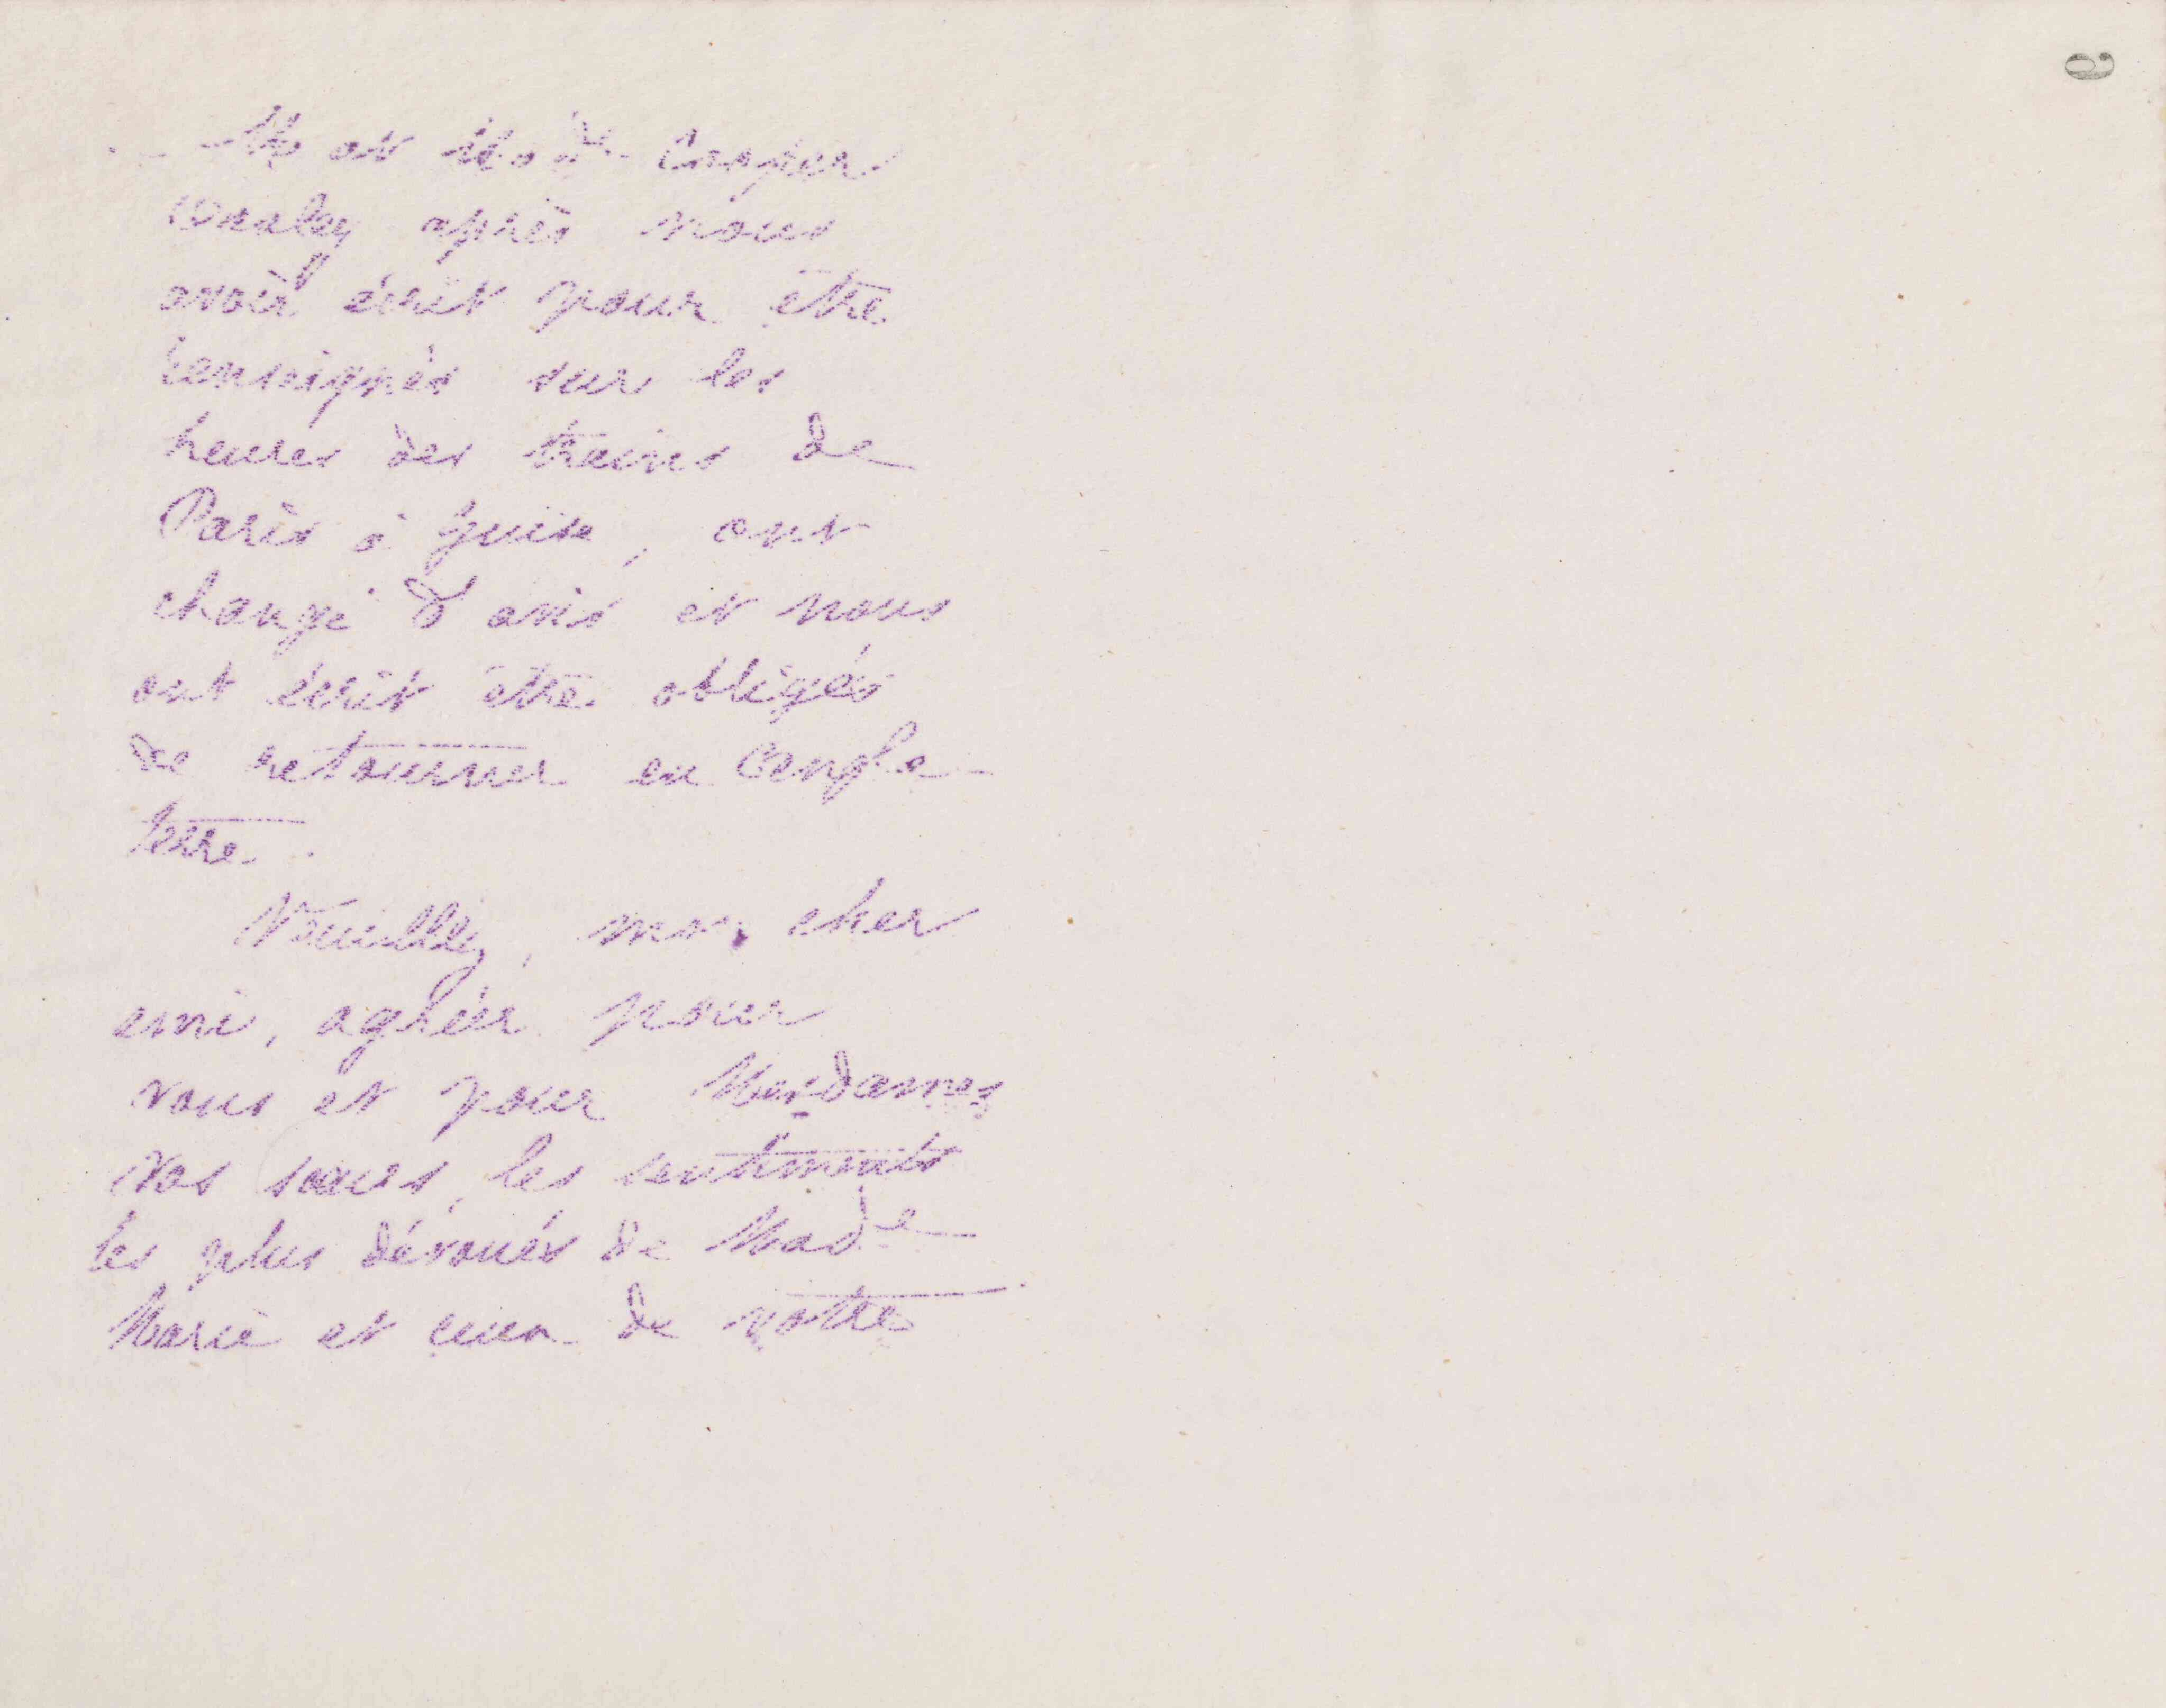 Mr et Made Cooper
Oakley après nous
avoir écrit pour être
renseignés sur les
heures des trains de
Paris à Guise, ont
changé d'avis et nous
ont écrit être obligés
de retourner en Angle-
terre.
Veuillez, mon cher
ami, agréer pour
vous et pour Mesdames
vos sœurs, les sentiments
les plus dévoués de Made
Marie et ceux de votre
9